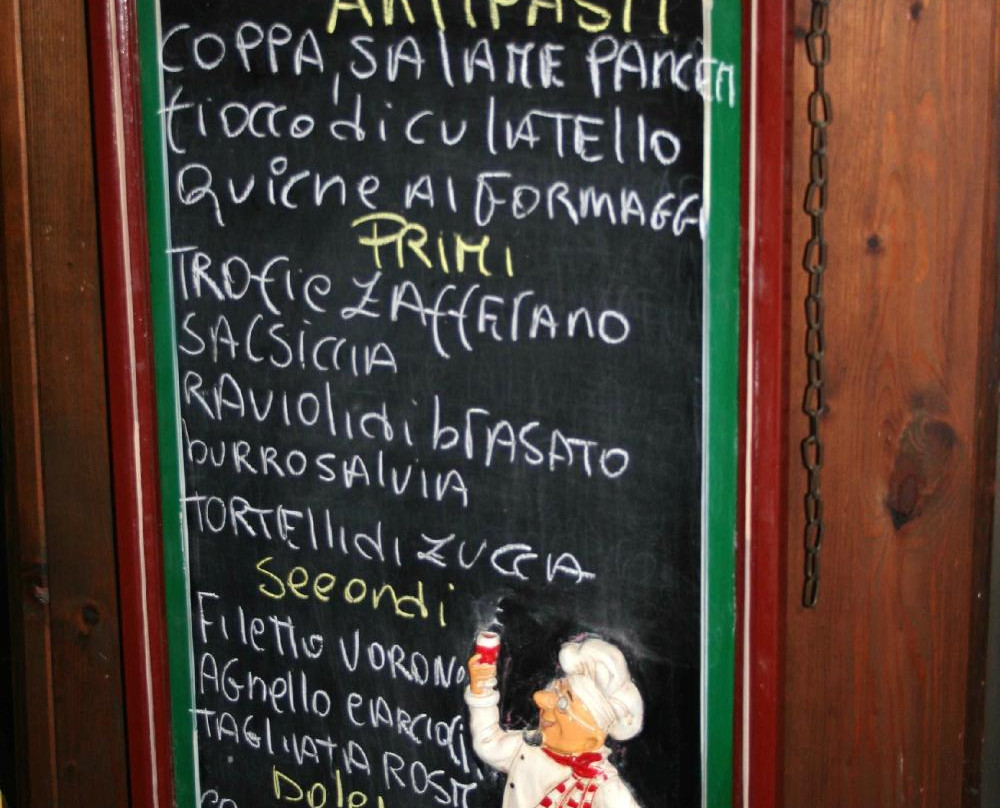 ANTIPASTI
COPPA, SALAME PANCETT
fiocco di culATEllO
Quiche AI FORMAGGI
PRIMI
TROfie ZAffERANO
SALSICCIA
RAVIOli di bRASATO
buRRO SAlVIA
TORTElli di ZUCCA
Secondi
Filetto VORONO
AGnello CARCIOfi
TAGLIATA ROST
Dolci